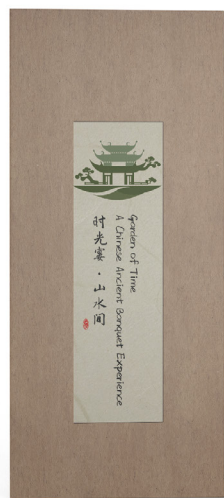 Garden of Time
A Chinese Ancient Banquet Experience
时光宴·山水间